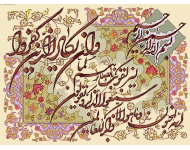 بسم الله الرحمن الرحيم
وإن يكاد الذين كفروا
ليزلقونك بأبصارهم لما
سمعوا الذكر ويقولون
إنه لمجنون وما هو إلا ذكر للعالمين